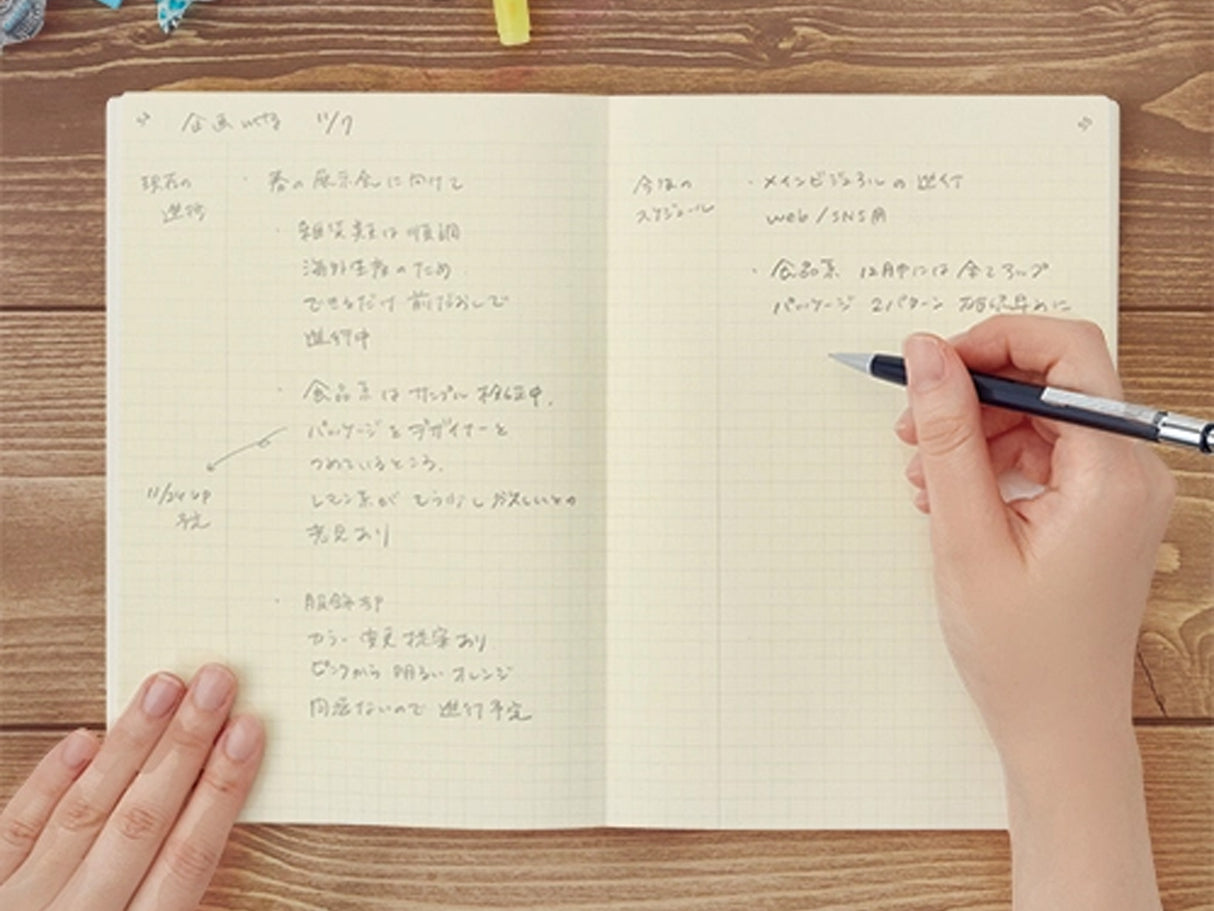 企画mtg 11/7
現在の
進行
・春の展示会に向けて
・雑貨類は順調
海外生産のため
できるだけ前だおしで
進行中
・食品系はサンプル検証中.
パッケージをデザイナーと
つめているところ.
レモン系がもう少し欲しいとの
意見あり
11/24 up
予定
・服飾部
カラー変更提案あり
ピンクから明るいオレンジ
問題ないので進行予定
今後の
スケジュール
・メインビジュアルの進行
web/SNS用
・食品系 12月中には全てアップ
パッケージ 2パターン